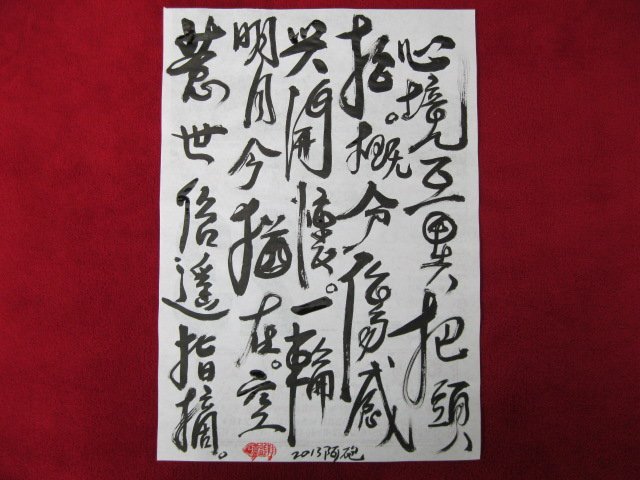 心境互異把頭
抬。概令傷感
與開懷。一輪
明月今猶在。空
惹世俗遙指摘。
2013阿砲